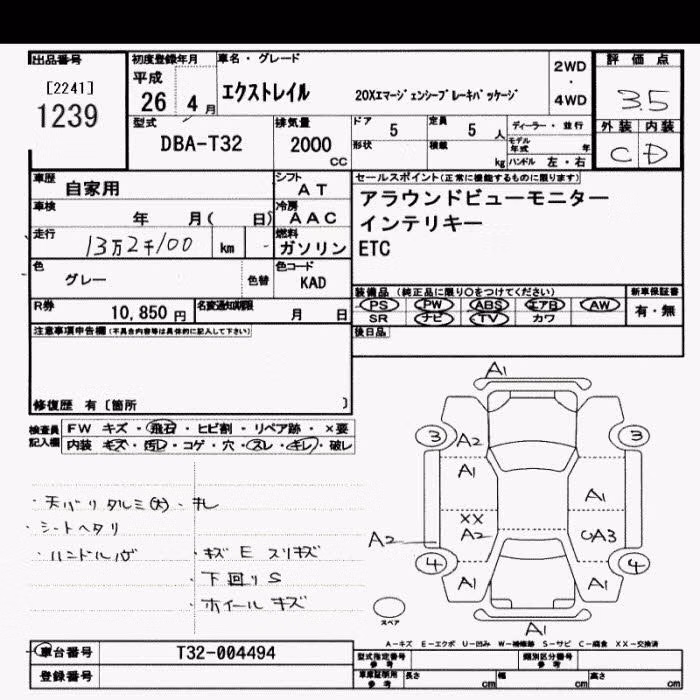 出品番号
[2241]
1239
初度登録年月
平成
26 4 月
車名・グレード
エクストレイル 20Xエマージェンシーブレーキパッケージ
2WD
・
4WD
評価点
3.5
外装 内装
C D
型式
DBA-T32
排気量
2000
CC
ドア 5
定員 5 人
形状
積載 kg
ディーラー・並行
モデル年式 年
ハンドル 左・右
車歴
自家用
シフト
AT
車検
年 月( 日)
冷房
AAC
走行
13万2千100 km
燃料
ガソリン
色
グレー
色替
色コード
KAD
R券
10,850 円
名変通知期限
月 日
セールスポイント(正常に機能するものに限ります)
アラウンドビューモニター
インテリキー
ETC
装備品(純正品に限り〇をつけてください)
PS PW ABS エアB AW
SR ナビ TV カワ
新車保証書
有・無
後日品
注意事項申告欄(不具合内容等は具体的に記入して下さい)
修復歴 有〔箇所 〕
検査員
記入欄
FW キズ・飛石・ヒビ割・リペア跡・×要
内装 キズ・汚レ・コゲ・穴・スレ・キレ・破レ
・天バリタルミ(大)・キレ
・シートヘタリ
・ハンドルハゲ
・キズ E スリキズ
・下回り S
・ホイールキズ
A1
3
3
A2
A1
A1
XX
A2
A2
CA3
4
4
A1
A1
A1
スペア
A-キズ E-エクボ U-凹み W-補修跡 S-サビ C-腐食 XX-交換済
車台番号
T32-004494
登録番号
型式指定番号
参考
類別区分番号
参考
車庫証明用
参考
長さ cm
幅 cm
高さ cm